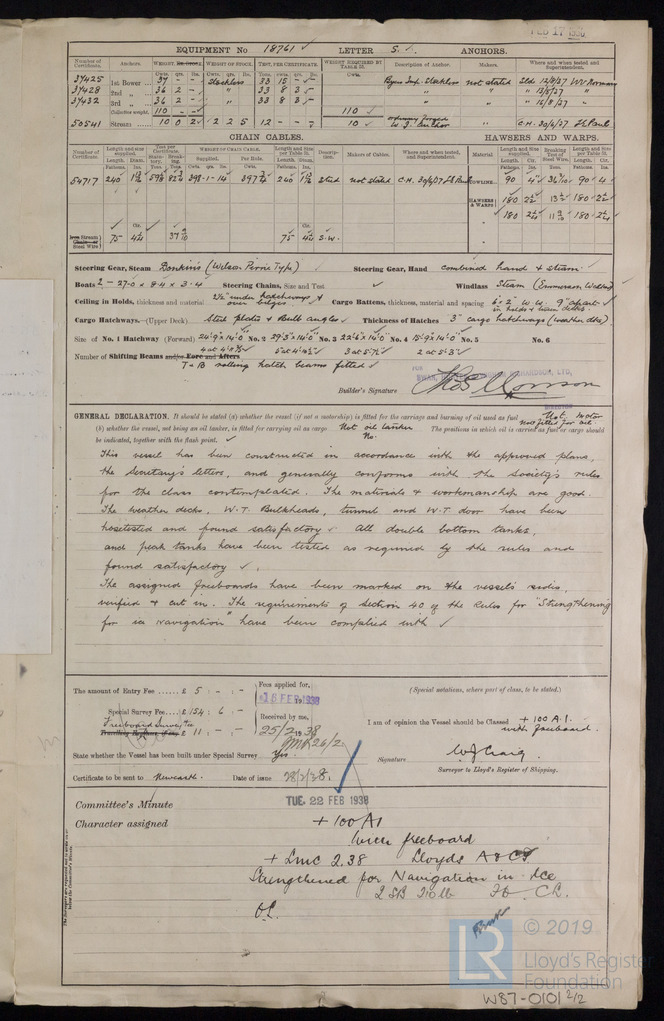 FEB 17 1938
EQUIPMENT No 18761 ✓ LETTER S. ✓ ANCHORS.
Number of Certificate. Anchors. WEIGHT, Ex. Stock. WEIGHT OF STOCK. TEST, PER CERTIFICATE. WEIGHT REQUIRED BY TABLE 22. Description of Anchor. Makers. Where and when tested and Superintendent.
37425 1st Bower 37 - - Stockless 33 15 - - Byers Imp. Stockless not stated Sld. 12/8/37 W. Norman
37428 2nd „ 36 2 - „ 33 8 3 - „ „ „ 13/8/37 „
37432 3rd „ 36 2 - „ 33 8 3 - „ „ „ 16/8/37 „
Collective weight. 110 - - 110 ✓
50541 Stream 10 0 2 2 2 5 12 - - - 10 ✓ ordinary forged W.I. Anchor „ C.H. 30/6/37 J.S. Paul
CHAIN CABLES. HAWSERS AND WARPS.
Number of Certificate. Length and size supplied. Test per Certificate. WEIGHT OF CHAIN CABLE. Length and Size per Table 22. Description. Makers of Cables. Where and when tested, and Superintendent. Material. Length and Size supplied. Breaking Test of Steel Wire. Length and Size per Table 22.
54717 240 398-1-14 397 240 Stud not stated C.H. 30/6/37 J.S. Paul TOWLINE 90 4" 90 4
HAWSERS & WARPS 180 2½ 180 2½
180 2¼ 180 2¼
Steel Wire) 75 4¼ 75 4¼ S.W.
Steering Gear, Steam Donkin's (Wilson Pirrie Type) ✓ Steering Gear, Hand combined hand & steam ✓
Boats 2 - 27.0 x 8.4 x 3.4 ✓ Steering Chains, Size and Test ✓ Windlass Steam (Emmerson Walker)
Ceiling in Holds, thickness and material 2½" under hatchways & over bilges ✓ Cargo Battens, thickness, material and spacing 6 x 2" W.W. 9" apart ✓ in holds & tween decks
Cargo Hatchways.—(Upper Deck) Steel plates & Bulb angles ✓ Thickness of Hatches 3" cargo hatchways (weather dks)
Size of No. 1 Hatchway 24'9" x 14'0" No. 2 29'3" x 14'0" No. 3 22'6" x 14'0" No. 4 15'9" x 14'0" No. 5 No. 6
Number of Shifting Beams and/or Fore and Afters 4 at 4'11½" 5 at 4'10½" 3 at 5'7½" 2 at 5'3" ✓
T & B rolling hatch beams fitted ✓
FOR SWAN, HUNTER & WIGHAM RICHARDSON, LTD.
Builder's Signature
DIRECTOR
GENERAL DECLARATION. It should be stated (a) whether the vessel (if not a motorship) is fitted for the carriage and burning of oil used as fuel Not motor Not fitted for oil
(b) whether the vessel, not being an oil tanker, is fitted for carrying oil as cargo Not oil tanker No. The positions in which oil is carried as fuel or cargo should
be indicated, together with the flash point. ✓
This vessel has been constructed in accordance with the approved plans,
the Secretary's letters, and generally conforms with the Society's rules
for the class contemplated. The materials & workmanship are good.
The weather decks, W.T. Bulkheads, tunnel and W.T door have been
hosetested and found satisfactory ✓ All double bottom tanks,
and peak tanks have been tested as required by the rules and
found satisfactory ✓.
The assigned freeboards have been marked on the vessel's sides,
verified & cut in. The requirements of section 40 of the Rules for "Strengthening
for ice Navigation" have been complied with ✓
The amount of Entry Fee £ 5 : - : -
Fees applied for,
18 FEB 1938
(Special notations, where part of class, to be stated.)
Special Survey Fee £ 154 : 6 : -
Freeboard Survey Fee £ 11 : - : -
Received by me,
25/2 1938
26/2
I am of opinion the Vessel should be Classed + 100 A.1. with freeboard.
State whether the Vessel has been built under Special Survey Yes.
Signature W J Craig
Surveyor to Lloyd's Register of Shipping.
Certificate to be sent to Newcastle. Date of issue 28/2/38.
Committee's Minute TUE. 22 FEB 1938
Character assigned + 100 A1
with freeboard
+ LMC 2.38 Lloyds A & CP
Strengthened for Navigation in Ice
2 SB 210 lb FD CL
O.L.
The Surveyors are requested not to write on or below the Committee's Minute.
© 2019
LR
Lloyd's Register
Foundation
W87-0101 2/2